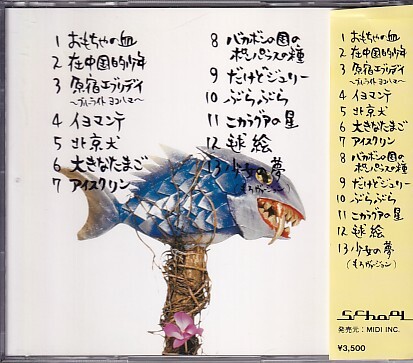 1 おもちゃの血
2 在中国的少年
3 原宿エブリデイ
〜ブルーライト ヨコハマ〜
4 イヨマンテ
5 北京犬
6 大きなたまご
7 アイスクリン
8 バカボンの国の
ポンパラスの種
9 だけどジュリー
10 ぶらぶら
11 ニカラグアの星
12 球絵
13 少女の夢
(もろヴァージョン)
1 おもちゃの血
2 在中国的少年
3 原宿エブリデイ
〜ブルーライト ヨコハマ〜
4 イヨマンテ
5 北京犬
6 大きなたまご
7 アイスクリン
8 バカボンの国の
ポンパラスの種
9 だけどジュリー
10 ぶらぶら
11 ニカラグアの星
12 球絵
13 少女の夢
(もろヴァージョン)
SCHOOL
発売元:MIDI INC.
¥3,500